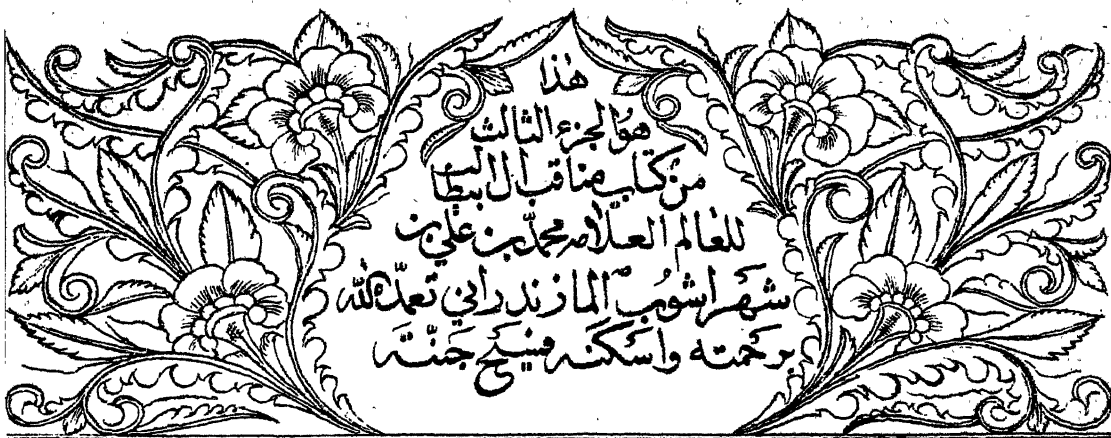 هذا
هو الجزء الثالث
من كتاب مناقب آل ابيطالب
للعالم العلامه محمد بن علي بن
شهراشوب المازندراني تغمده الله
برحمته واسكنه فسيح جنته